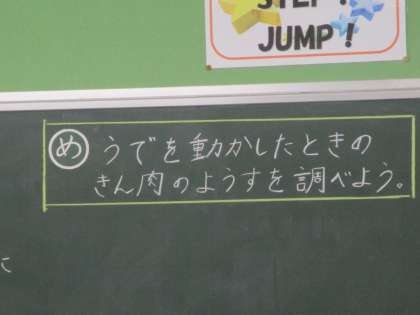 STEP!
JUMP!
め うでを動かしたときの
きん肉のようすを調べよう。
に